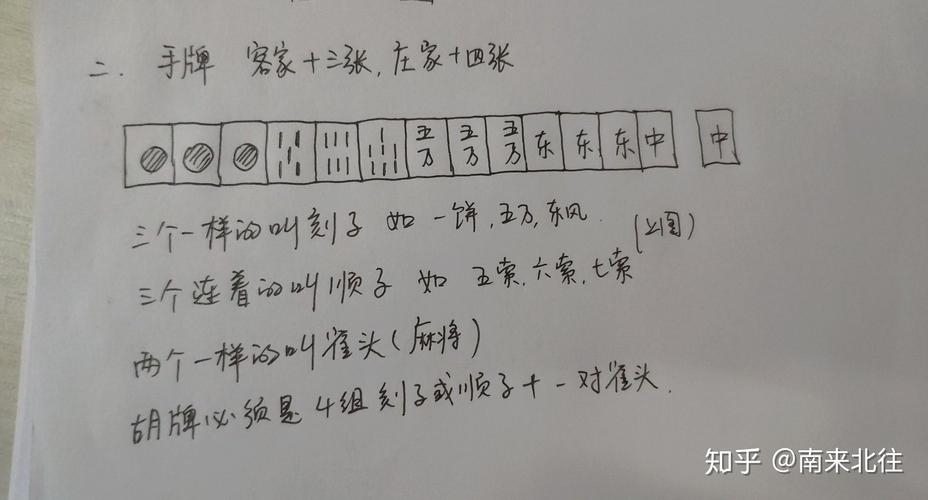 二. 手牌 客家十三张, 庄家十四张
五万 五万 五万 东 东 东 中 中
三个一样的叫刻子 如 一饼, 五万, 东风.
(上图)
三个连着的叫顺子 如 五索, 六索, 七索
两个一样的叫雀头(麻将)
胡牌必须是 4组刻子或顺子+一对雀头.
知乎 @南来北往